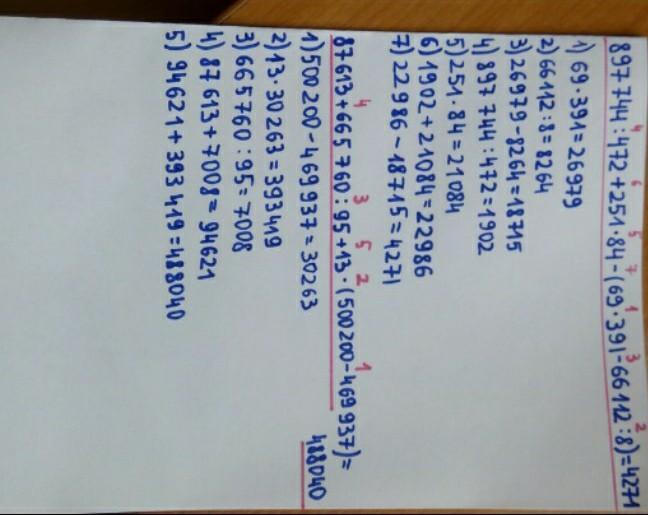 4 6 5 7 1 3 2
897 744 : 472 + 251 · 84 - (69 · 391 - 66 112 : 8) = 4271
1) 69 · 391 = 26979
2) 66112 : 8 = 8264
3) 26979 - 8264 = 18715
4) 897 744 : 472 = 1902
5) 251 · 84 = 21084
6) 1902 + 21084 = 22986
7) 22 986 - 18715 = 4271
4 3 5 2 1
87 613 + 665 760 : 95 + 13 · (500 200 - 469 937) =
488040
1) 500 200 - 469 937 = 30263
2) 13 · 30 263 = 393419
3) 665760 : 95 = 7008
4) 87 613 + 7008 = 94621
5) 94621 + 393 419 = 488040